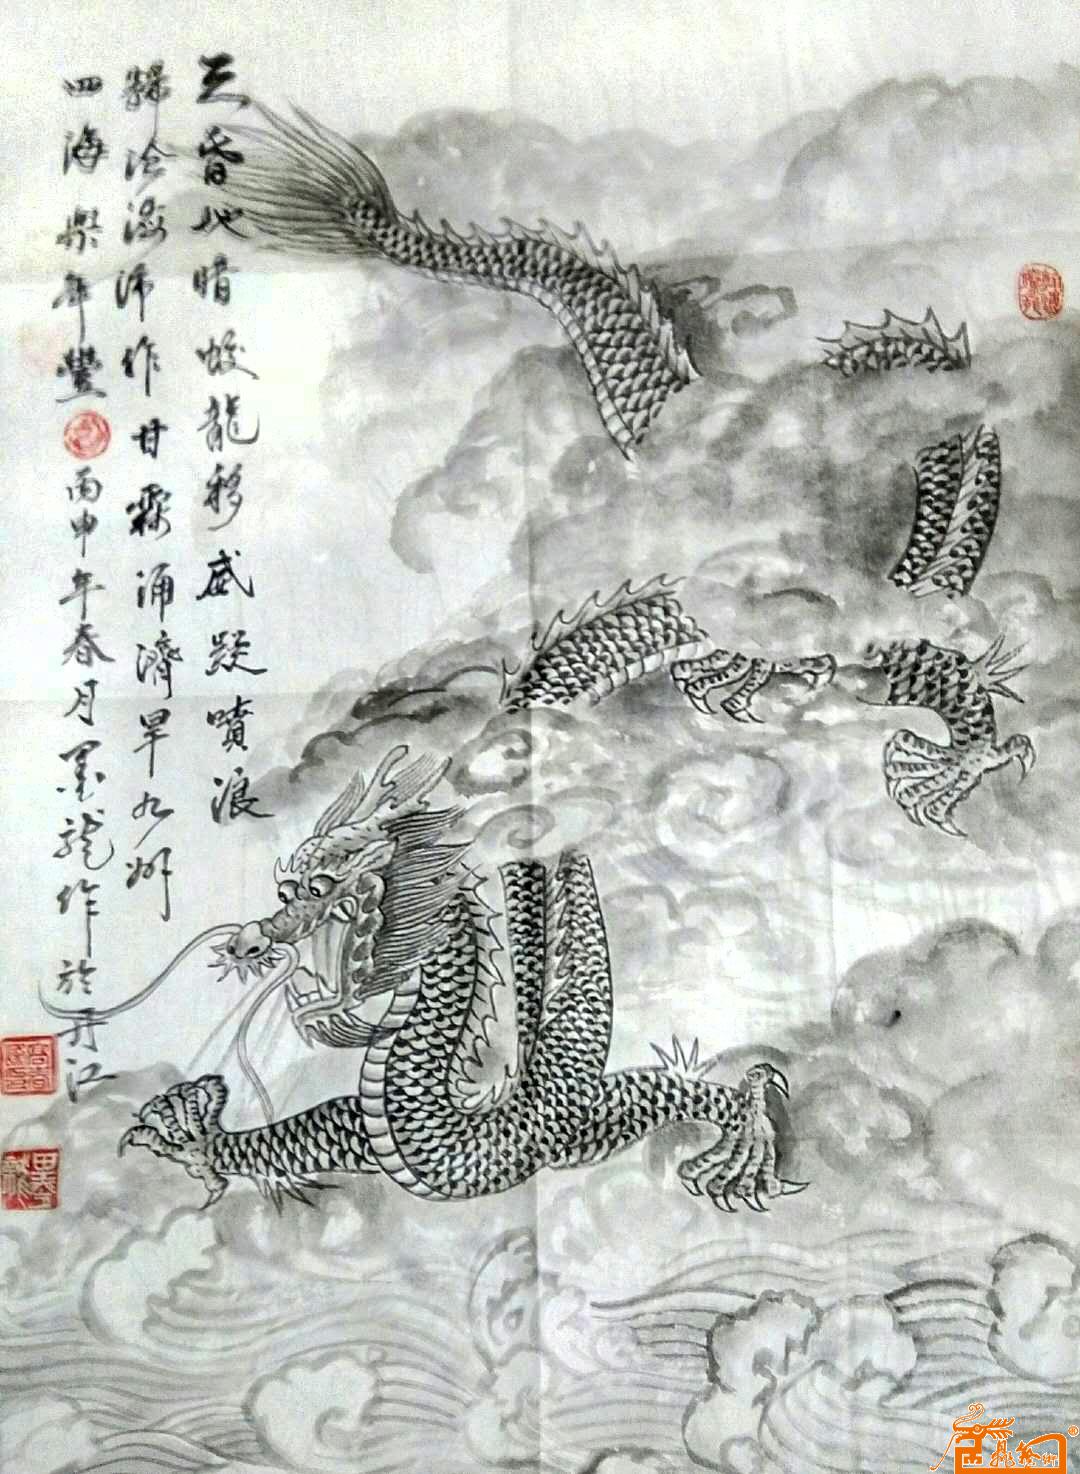 天昏地暗蛟龍移威踨噴浪
歸滄海沛作甘霖涌濟旱九州
四海樂年豐
丙申年春月墨龍作於丹江